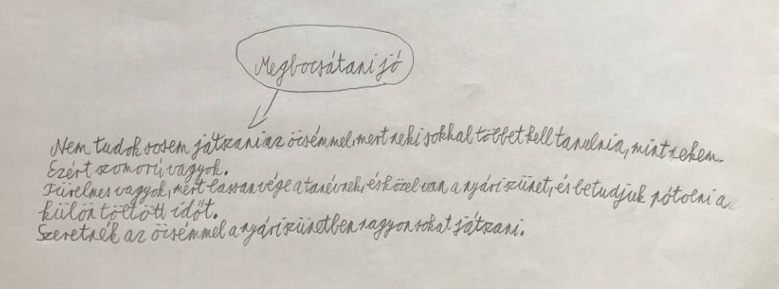 Megbocsátani jó
Nem tudok sosem játszani az öcsémmel, mert neki sokkal többet kell tanulnia, mint nekem.
Ezért szomorú vagyok.
Türelmes vagyok, mert lassan vége a tanévnek, és közel van a nyári szünet, és be tudjuk pótolni a
külön töltött időt.
Szeretnék az öcsémmel a nyári szünetben nagyon sokat játszani.